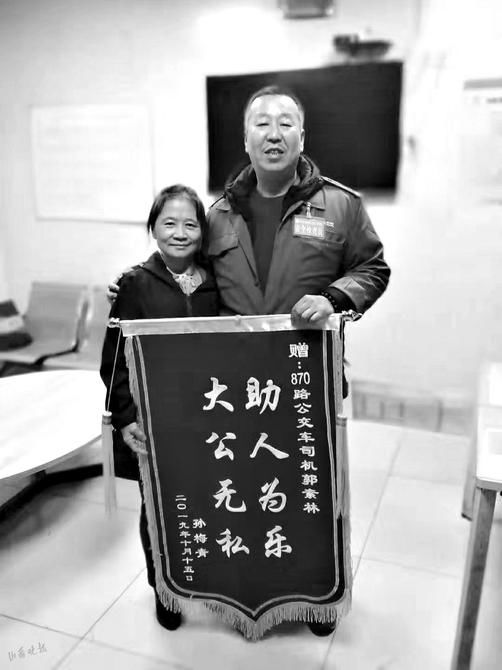 赠：870路公交车司机郭素林
助人为乐
大公无私
孙梅青
二〇一九年十月十五日
安全检查员
山西晚报